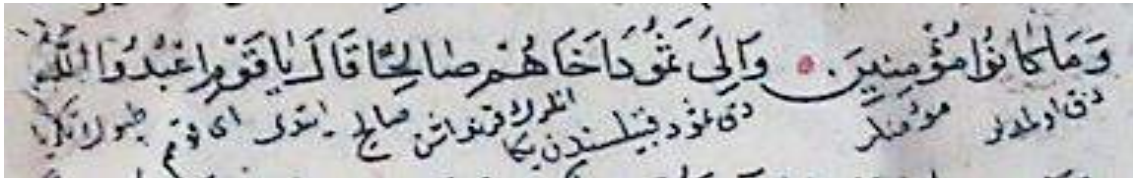 وَمَا كَانُوا مُؤْمِنِينَ. وَاِلَى ثَمُودَ اَخَاهُمْ صَالِحًا قَالَ يَا قَوْمِ اعْبُدُوا اللَّهَ
دقی اولمدلر مؤمنلر دقی ثمود قبیلسندن یکا انلرك قرنداشن صالح ایتدی ای قوم